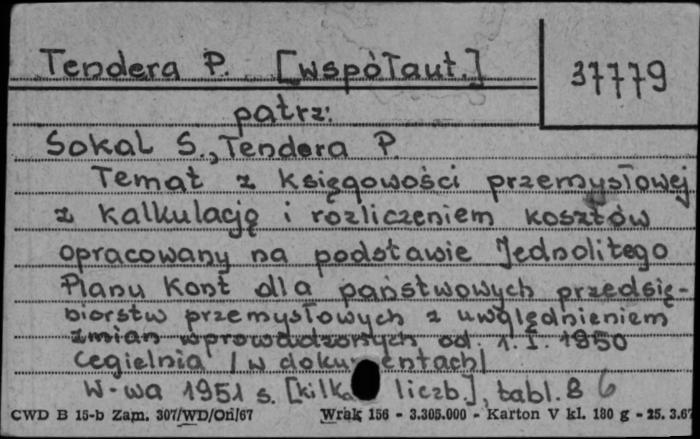 Tendera P. [współaut.]
37779
patrz:
Sokal S., Tendera P.
Temat z księgowości przemysłowej
z kalkulacją i rozliczeniem kosztów
opracowany na podstawie Jednolitego
Planu Kont dla państwowych przedsię-
biorstw przemysłowych z uwględnieniem
zmian wprowadzonych od 1. I. 1950
Cegielnia /w dokumentach/
W-wa 1951 s. [kilka liczb.], tabl. 8 6
CWD B 15-b Zam. 307/WD/On/67 Wrak 156 - 3.305.000 - Karton V kl. 180 g - 25. 3.67